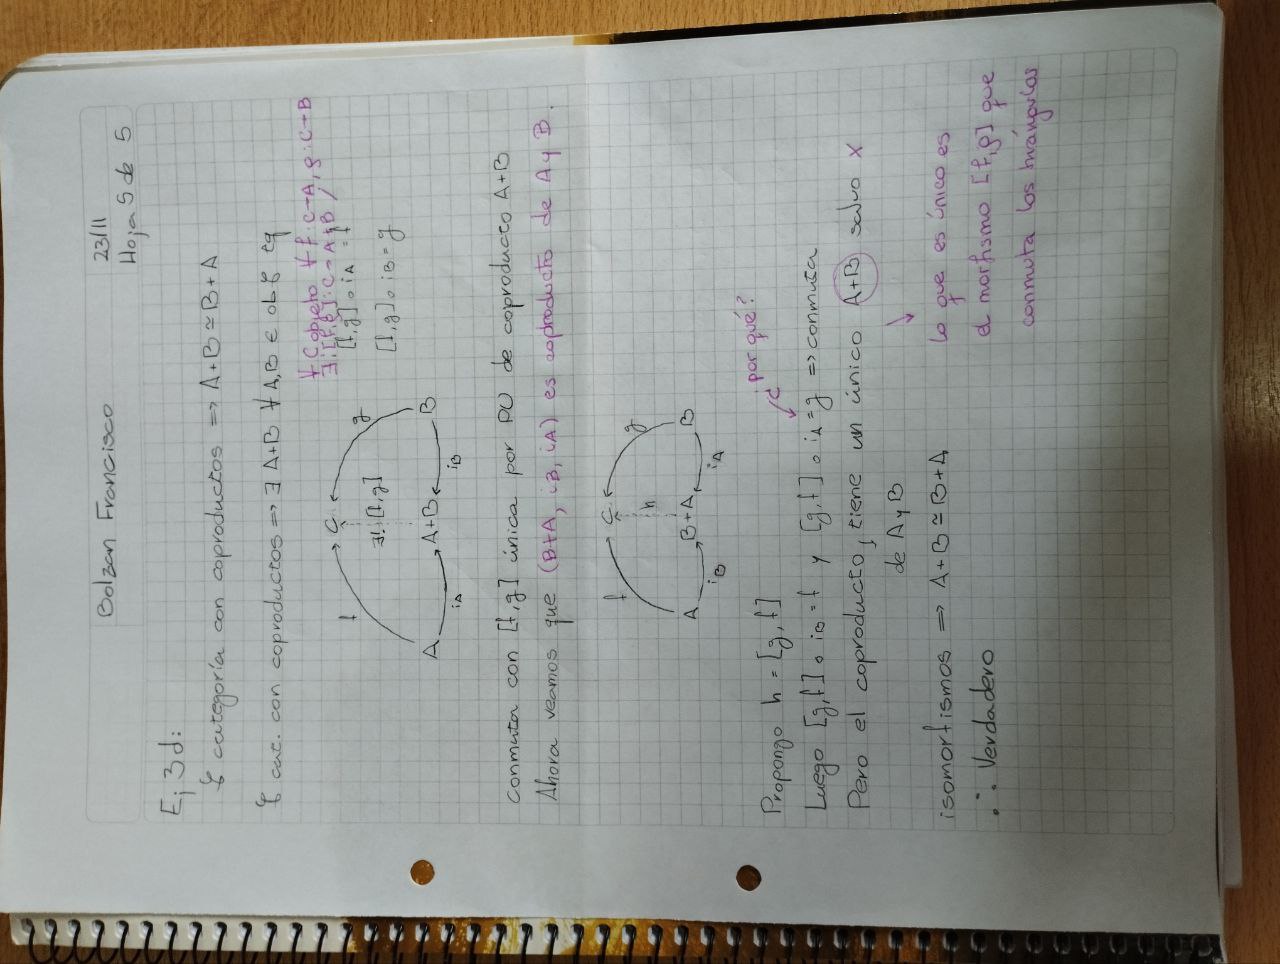 Bolzan Francisco
23/11
Hoja 5 de 5
Ej 3d:
C categoría con coproductos ⇒ A+B ≃ B+A
C cat. con coproductos ⇒ ∃ A+B ∀ A,B ∈ ob C tq
∀ C objeto ∀ f: C→A, g: C→B
∃! [f,g]: C→A+B /
[f,g] ∘ iA = f
[f,g] ∘ iB = g
C
f
∃! [f,g]
g
A
A+B
B
iA
iB
conmuta con [f,g] única por PU de coproducto A+B
Ahora veamos que (B+A, iB, iA) es coproducto de A y B.
C
f
g
h
A
B+A
B
iB
iA
por qué?
Propongo h = [g,f]
Luego [g,f] ∘ iB = f y [g,f] ∘ iA = g ⇒ conmuta
Pero el coproducto, tiene un único A+B salvo x
de A y B
isomorfismos ⇒ A+B ≃ B+A
∴ Verdadero
lo que es único es
el morfismo [f,g] que
conmuta los triángulos